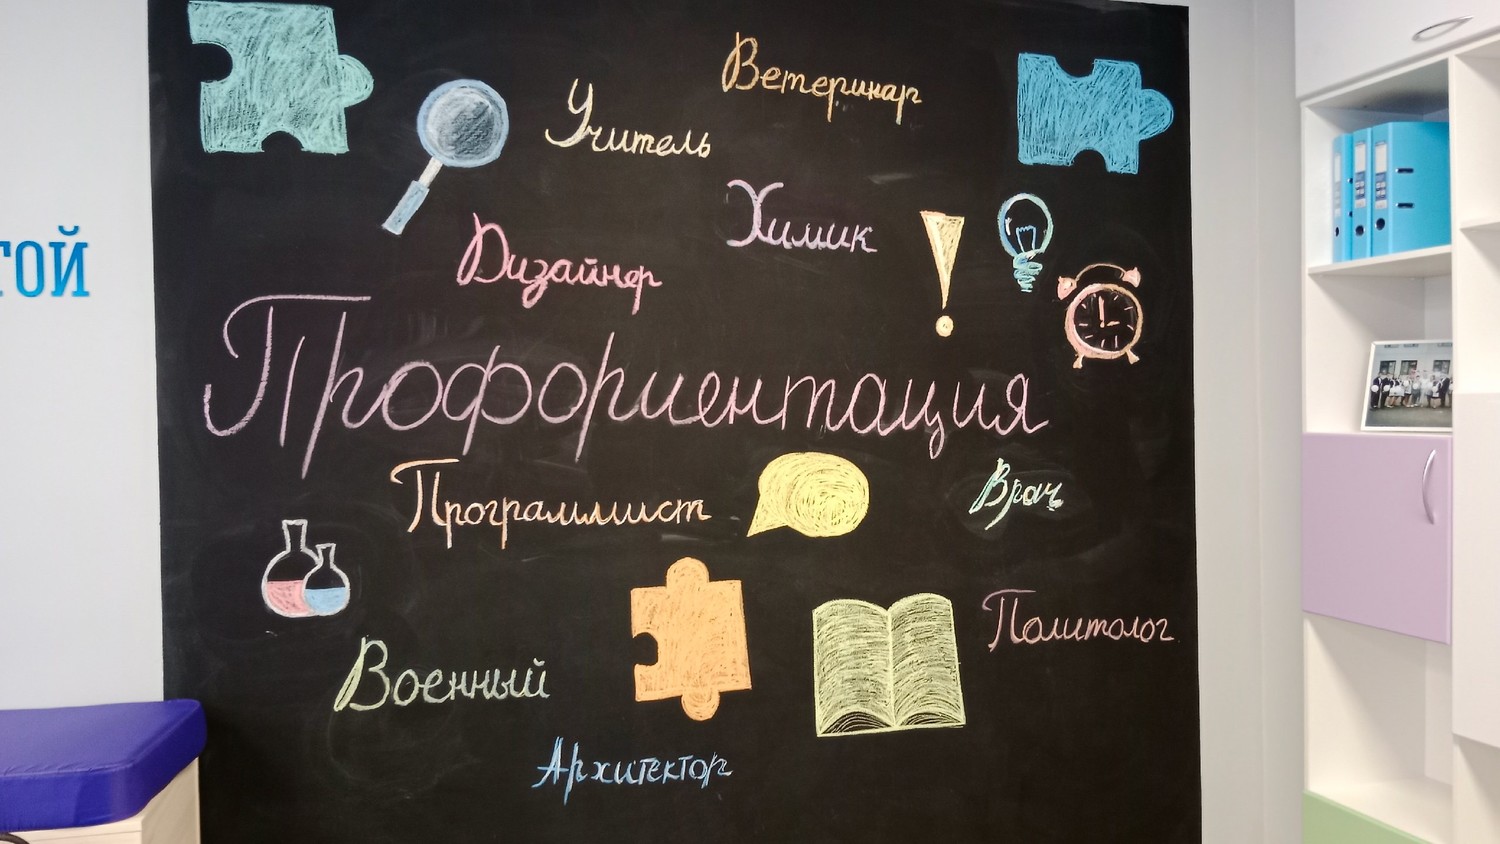 Ветеринар
Учитель
Химик
Дизайнер
Профориентация
Программист
Врач
Политолог
Военный
Архитектор
той